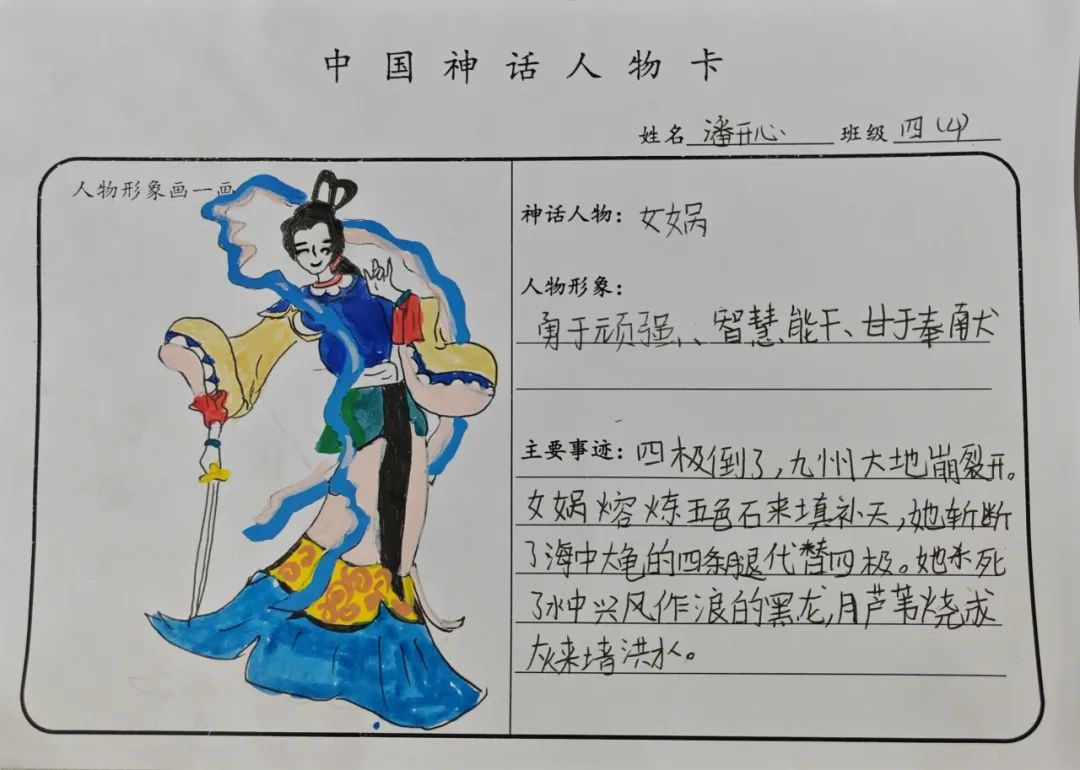 中国神话人物卡
姓名 潘开心 班级 四(4)
人物形象画一画
神话人物：女娲
人物形象：
勇于顽强、、智慧能干、甘于奉献
主要事迹：四极倒了，九州大地崩裂开。
女娲熔炼五色石来填补天，她斩断
了海中大龟的四条腿代替四极。她杀死
了水中兴风作浪的黑龙，月芦苇烧成
灰来堵洪水。